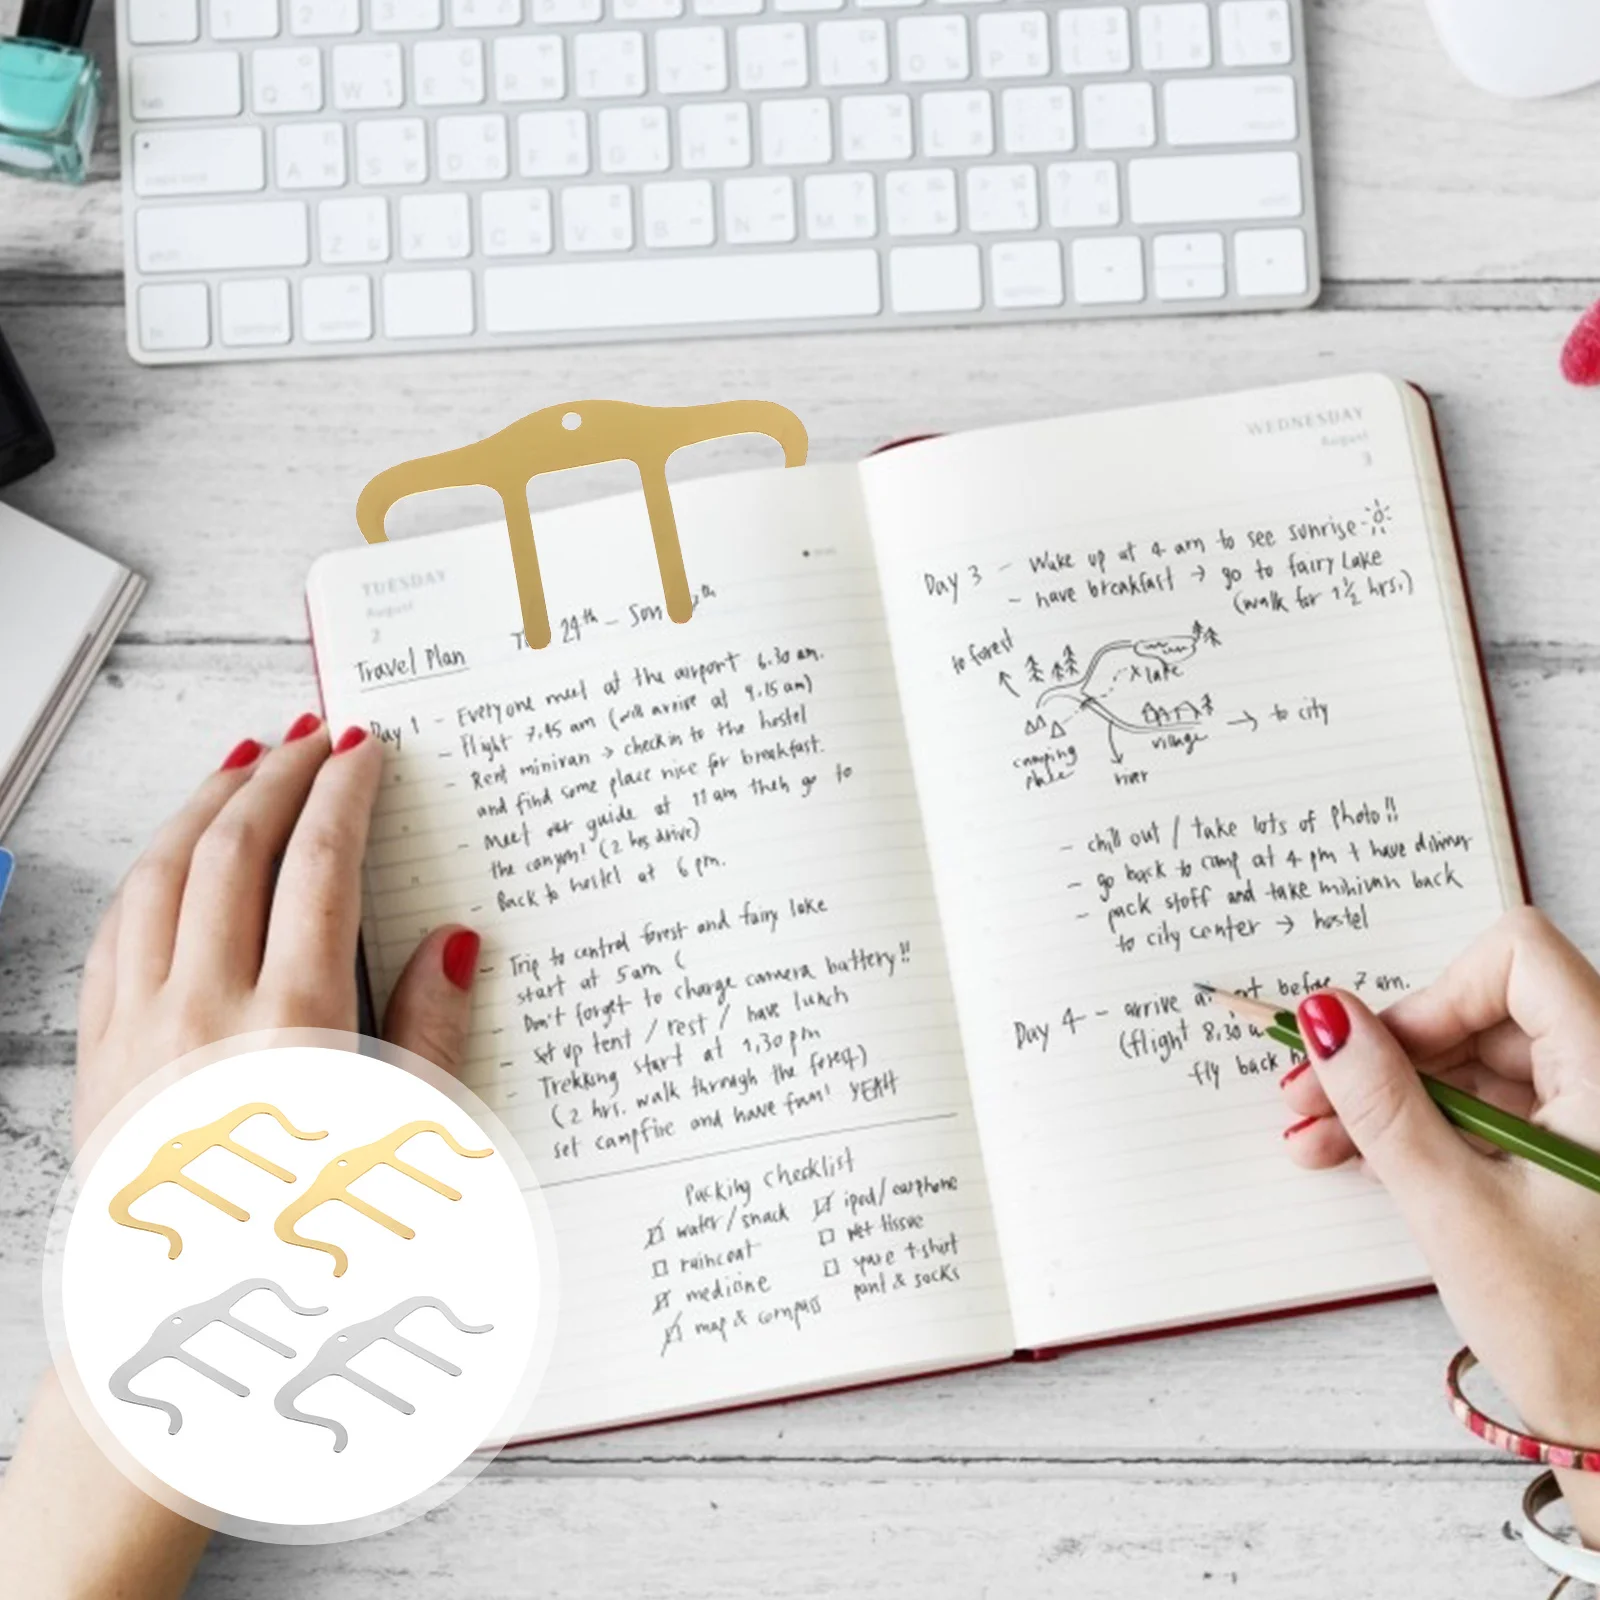 TUESDAY
August
2
Travel Plan 29th – Son th
Day 1 – Everyone meet at the airport 6.30 am.
– Flight 7.45 am (will arrive at 9.15 am)
– Rent minivan → check in to the hostel
and find some place nice for breakfast.
– Meet our guide at 11 am then go to
the canyon! (2 hrs drive)
– Back to hostel at 6 pm.
– Trip to central forest and fairy lake
start at 5am (
– Don't forget to charge camera battery!!
– set up tent / rest / have lunch
– Trekking start at 1,30 pm
(2 hrs. walk through the forest)
set campfire and have fun! YEAH
Packing checklist
water/snack
raincoat
medicine
map & compass
ipod/earphone
wet tissue
spare t-shirt
pant & socks
WEDNESDAY
August
3
Day 3 – Wake up at 4 am to see sunrise
– have breakfast → go to fairy Lake
(walk for 1½ hrs.)
to forest
x lake
camping
place
village
river
→ to city
– chill out / take lots of photo!!
– go back to camp at 4 pm + have dinner
– pack stuff and take minivan back
to city center → hostel
Day 4 – arrive before 7 am.
(flight 8,30
fly back